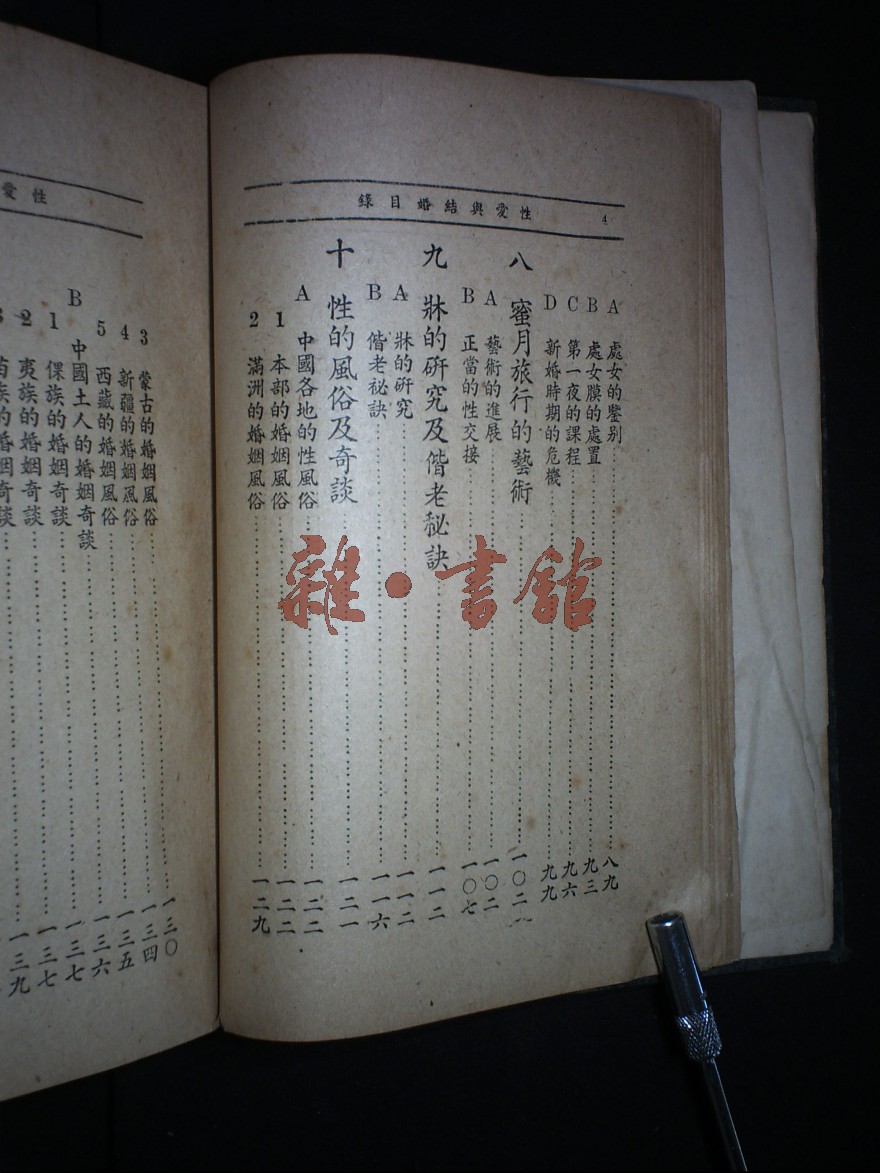 性愛與結婚目錄 4
A 處女的鑒別 八九
B 處女膜的處置 九三
C 第一夜的課程 九六
D 新婚時期的危機 九九
八 蜜月旅行的藝術 一〇二
A 藝術的進展 一〇二
B 正當的性交接 一〇七
九 牀的研究及偕老秘訣 一一二
A 牀的研究 一一二
B 偕老祕訣 一一六
十 性的風俗及奇談 一二一
A 中國各地的性風俗 一二二
1 本部的婚姻風俗 一二二
2 滿洲的婚姻風俗 一二九
性愛
3 蒙古的婚姻風俗 一三〇
4 新疆的婚姻風俗 一三四
5 西藏的婚姻風俗 一三五
B 中國土人的婚姻奇談 一三六
1 倮族的婚姻奇談 一三七
2 夷族的婚姻奇談 一三七
3 苗族的婚姻奇談 一三九
雜·書館